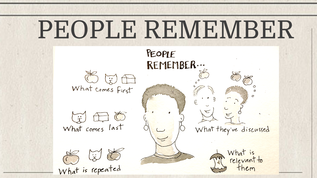 PEOPLE REMEMBER
PEOPLE
REMEMBER...
What comes first
What comes last
What is repeated
What they've discussed
What is
relevant to
them